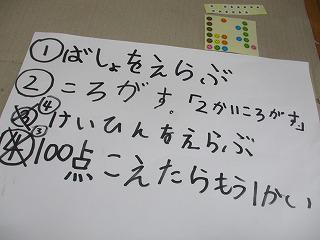 ①ばしょをえらぶ
②ころがす。「2かいころがす」
③④けいひんをえらぶ
④③100点こえたらもう1かい